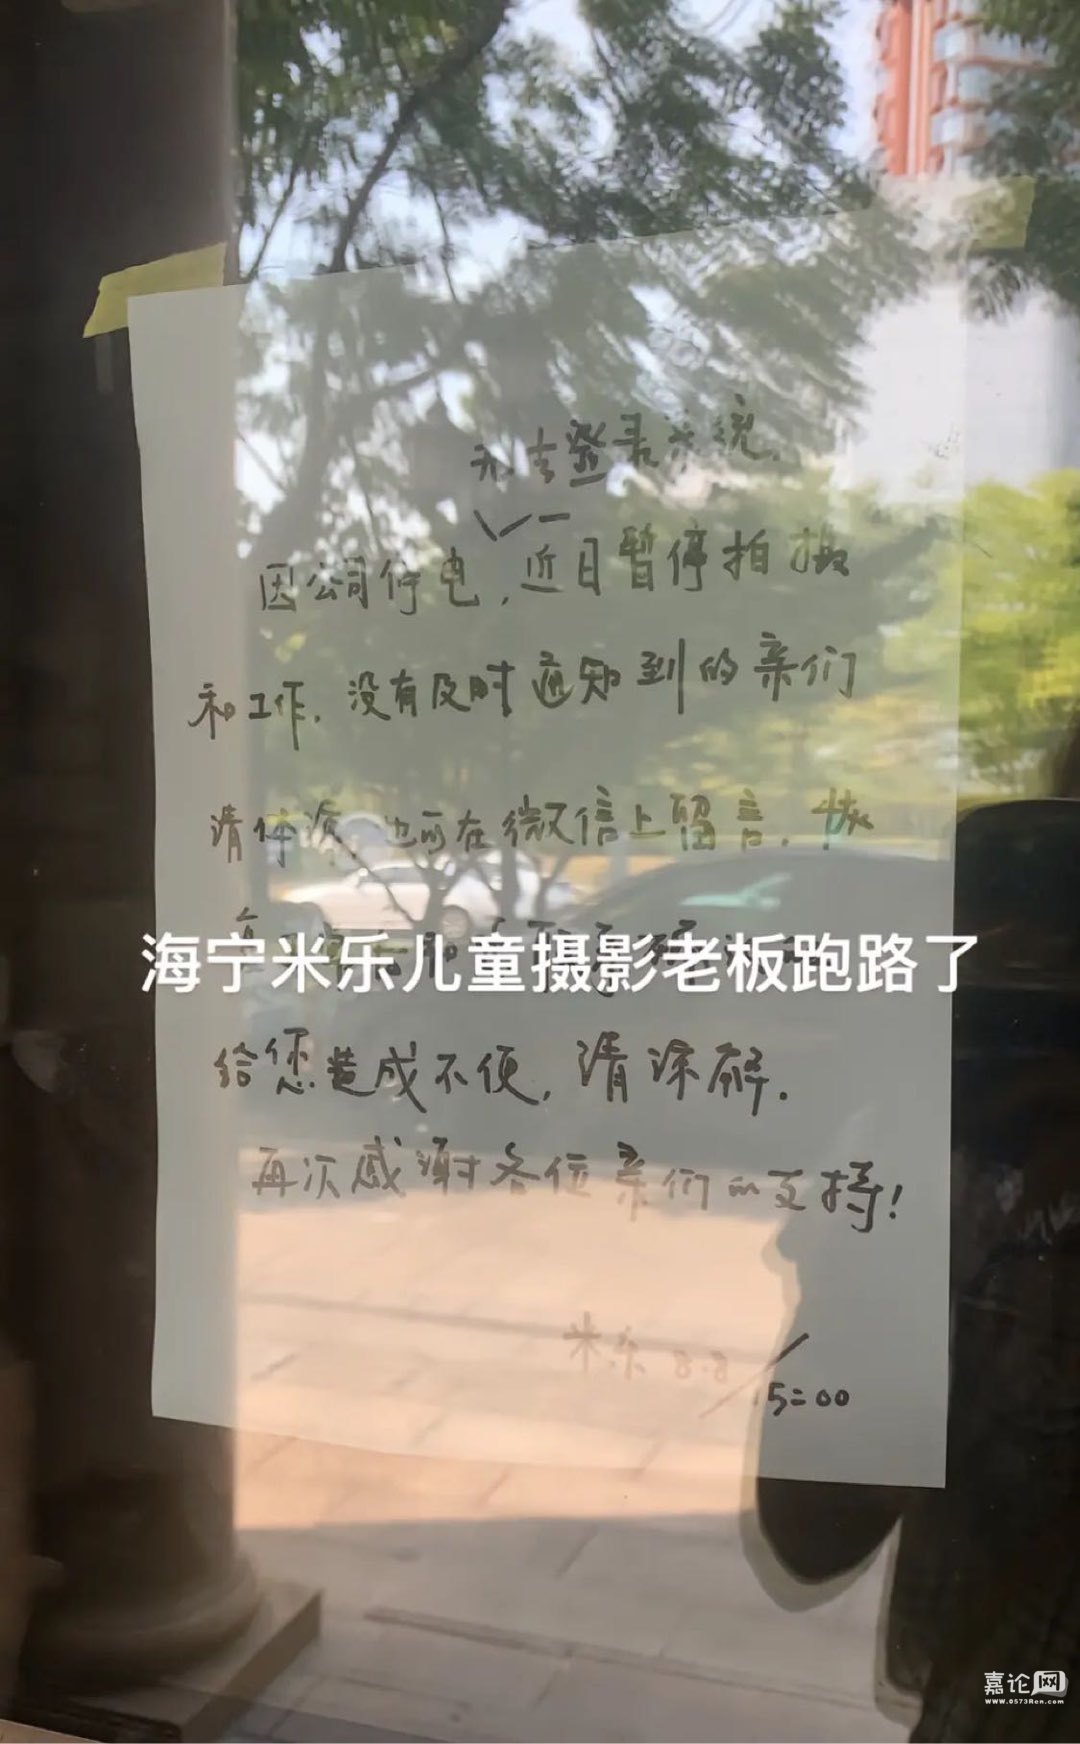 无法登录系统,
因公司停电,近日暂停拍摄
和工作,没有及时通知到的亲们
请体谅,也可在微信上留言,恢
海宁米乐儿童摄影老板跑路了
给您造成不便,请谅解.
再次感谢各位亲们的支持!
米乐 8.8/15=00
嘉论网
www.0573Ren.com